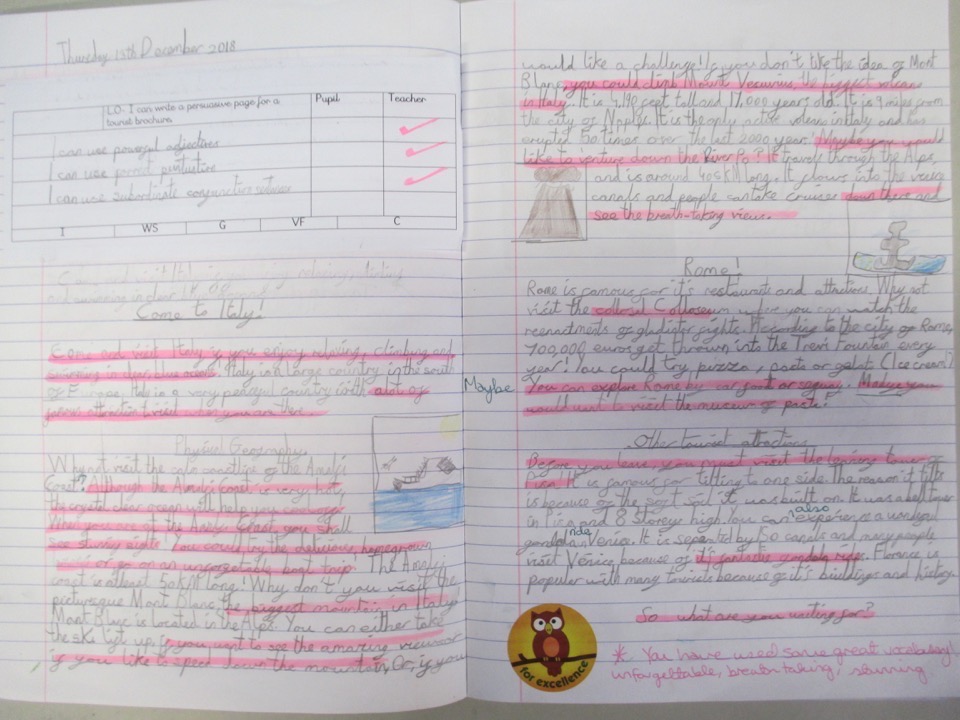 Thursday 13th December 2018
LO: I can write a persuasive page for a
tourist brochure.
Pupil
Teacher
I can use powerful adjectives
I can use correct puntuation
I can use subordinate conjunction
I
WS
G
VF
C
Come to Italy!
Come and visit Italy if you enjoy relaxing, climbing and
swimming in clear blue oceans. Italy is a large country in the south
of Europe. Italy is a very peaceful country with alot of
famous attractions to visit when you are there.
Physical Geography
Why not visit the calm coastline of the Amalfi
Coast? Although the Amalfi Coast is very hot,
the crystal clear ocean will help you
When you are at the Amalfi Coast, you shall
see stunning sights. You could try the delicious homegrown
or go on an unforgetable boat trip. The Amalfi
coast is atleast 50km long! Why don't you visit the
picturesque Mont Blanc, the biggest mountain in Italy.
Mont Blanc is located in the Alps. You can either take
the ski lift up if you want to see the amazing views or
if you like to speed down the mountain. Or, if you
would like a challenge! If you don't like the idea of Mont
Blanc, you could climb Mount Vesuvius, the biggest volcano
in Italy. It is 4,190 feet tall and 17,000 years old. It is 9 miles from
the city of Naples. It is the only active volcano in Italy and has
erupted 50 times over the last 2000 years! Maybe you would
like to venture down the River Po? It travels through the Alps,
and is around 405km long. It flows into the venice
canals and people can take cruises down there and
see the breath-taking views.
Rome!
Rome is famous for it's restaurants and attractions. Why not
visit the collosal Colloseum where you can watch the
reenactments of gladiator fights. According to the city of Rome,
700,000 euros get thrown into the Trevi Fountain every
year! You could try pizza, pasta or gelato (Ice cream)!
Maybe
You can explore Rome by car, foot or segway. Maybe you
would want to visit the museum of pasta!
Other tourist attractions
Before you leave, you must visit the leaning tower of
Pisa. It is famous for tilting to one side. The reason it tilts
is because of the soft soil it was built on. It was a bell tower
in Pisa and 8 storeys high. You can also experience a
gondola in Venice. It is seperated by 50 canals and many people
visit Venice because of it's fantastic gondola rides. Florence is
popular with many tourists because of it's buildings and history.
So what are you waiting for?
for excellence
* You have used some great vocabulary!
unforgettable, breath taking, stunning.